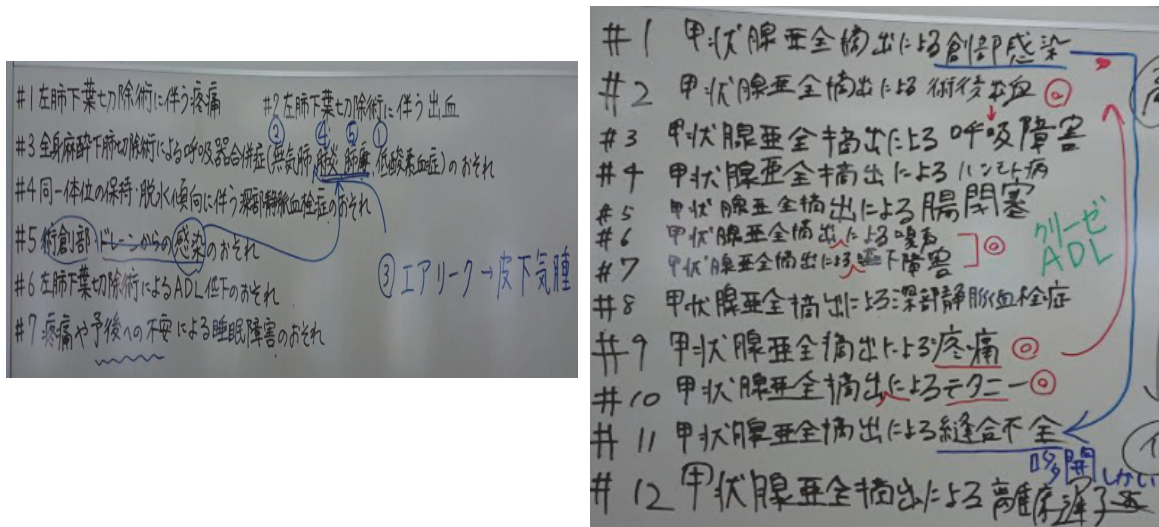 #1 左肺下葉切除術に伴う疼痛 #2 左肺下葉切除術に伴う出血
② ④ ⑤ ①
#3 全身麻酔下肺切除術による呼吸器合併症(無気肺・肺炎・肺瘻・低酸素血症)のおそれ
#4 同一体位の保持・脱水傾向に伴う深部静脈血栓症のおそれ
#5 術創部・ドレーンからの感染のおそれ
③ エアリーク→皮下気腫
#6 左肺下葉切除術によるADL低下のおそれ
#7 疼痛や予後への不安による睡眠障害のおそれ
#1 甲状腺亜全摘出による創部感染
#2 甲状腺亜全摘出による術後出血 ◎
#3 甲状腺亜全摘出による呼吸障害
#4 甲状腺亜全摘出による
#5 甲状腺亜全摘出による腸閉塞
#6 甲状腺亜全摘出による嗄声
#7 甲状腺亜全摘出による嚥下障害 ◎
クリーゼ
ADL
#8 甲状腺亜全摘出による深部静脈血栓症
#9 甲状腺亜全摘出による疼痛 ◎
#10 甲状腺亜全摘出によるテタニー ◎
#11 甲状腺亜全摘出による縫合不全
哆開 しかい
#12 甲状腺亜全摘出による離床遅延